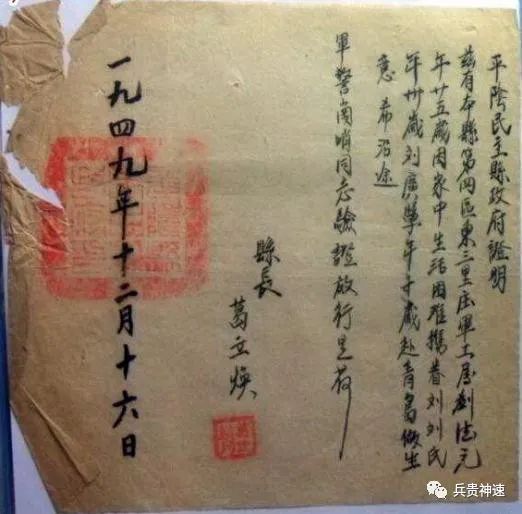 平陰民主縣政府證明
茲有本縣第四區東三里庄軍工屬劉法元
年廿五歲因家中生活困難携眷刘刘氏
年卅歲刘廣學年十歲赴青島做生
意希沿途
軍警崗哨同志驗證放行是荷
縣長
葛立煥
一九四九年十二月十六日
兵贵神速